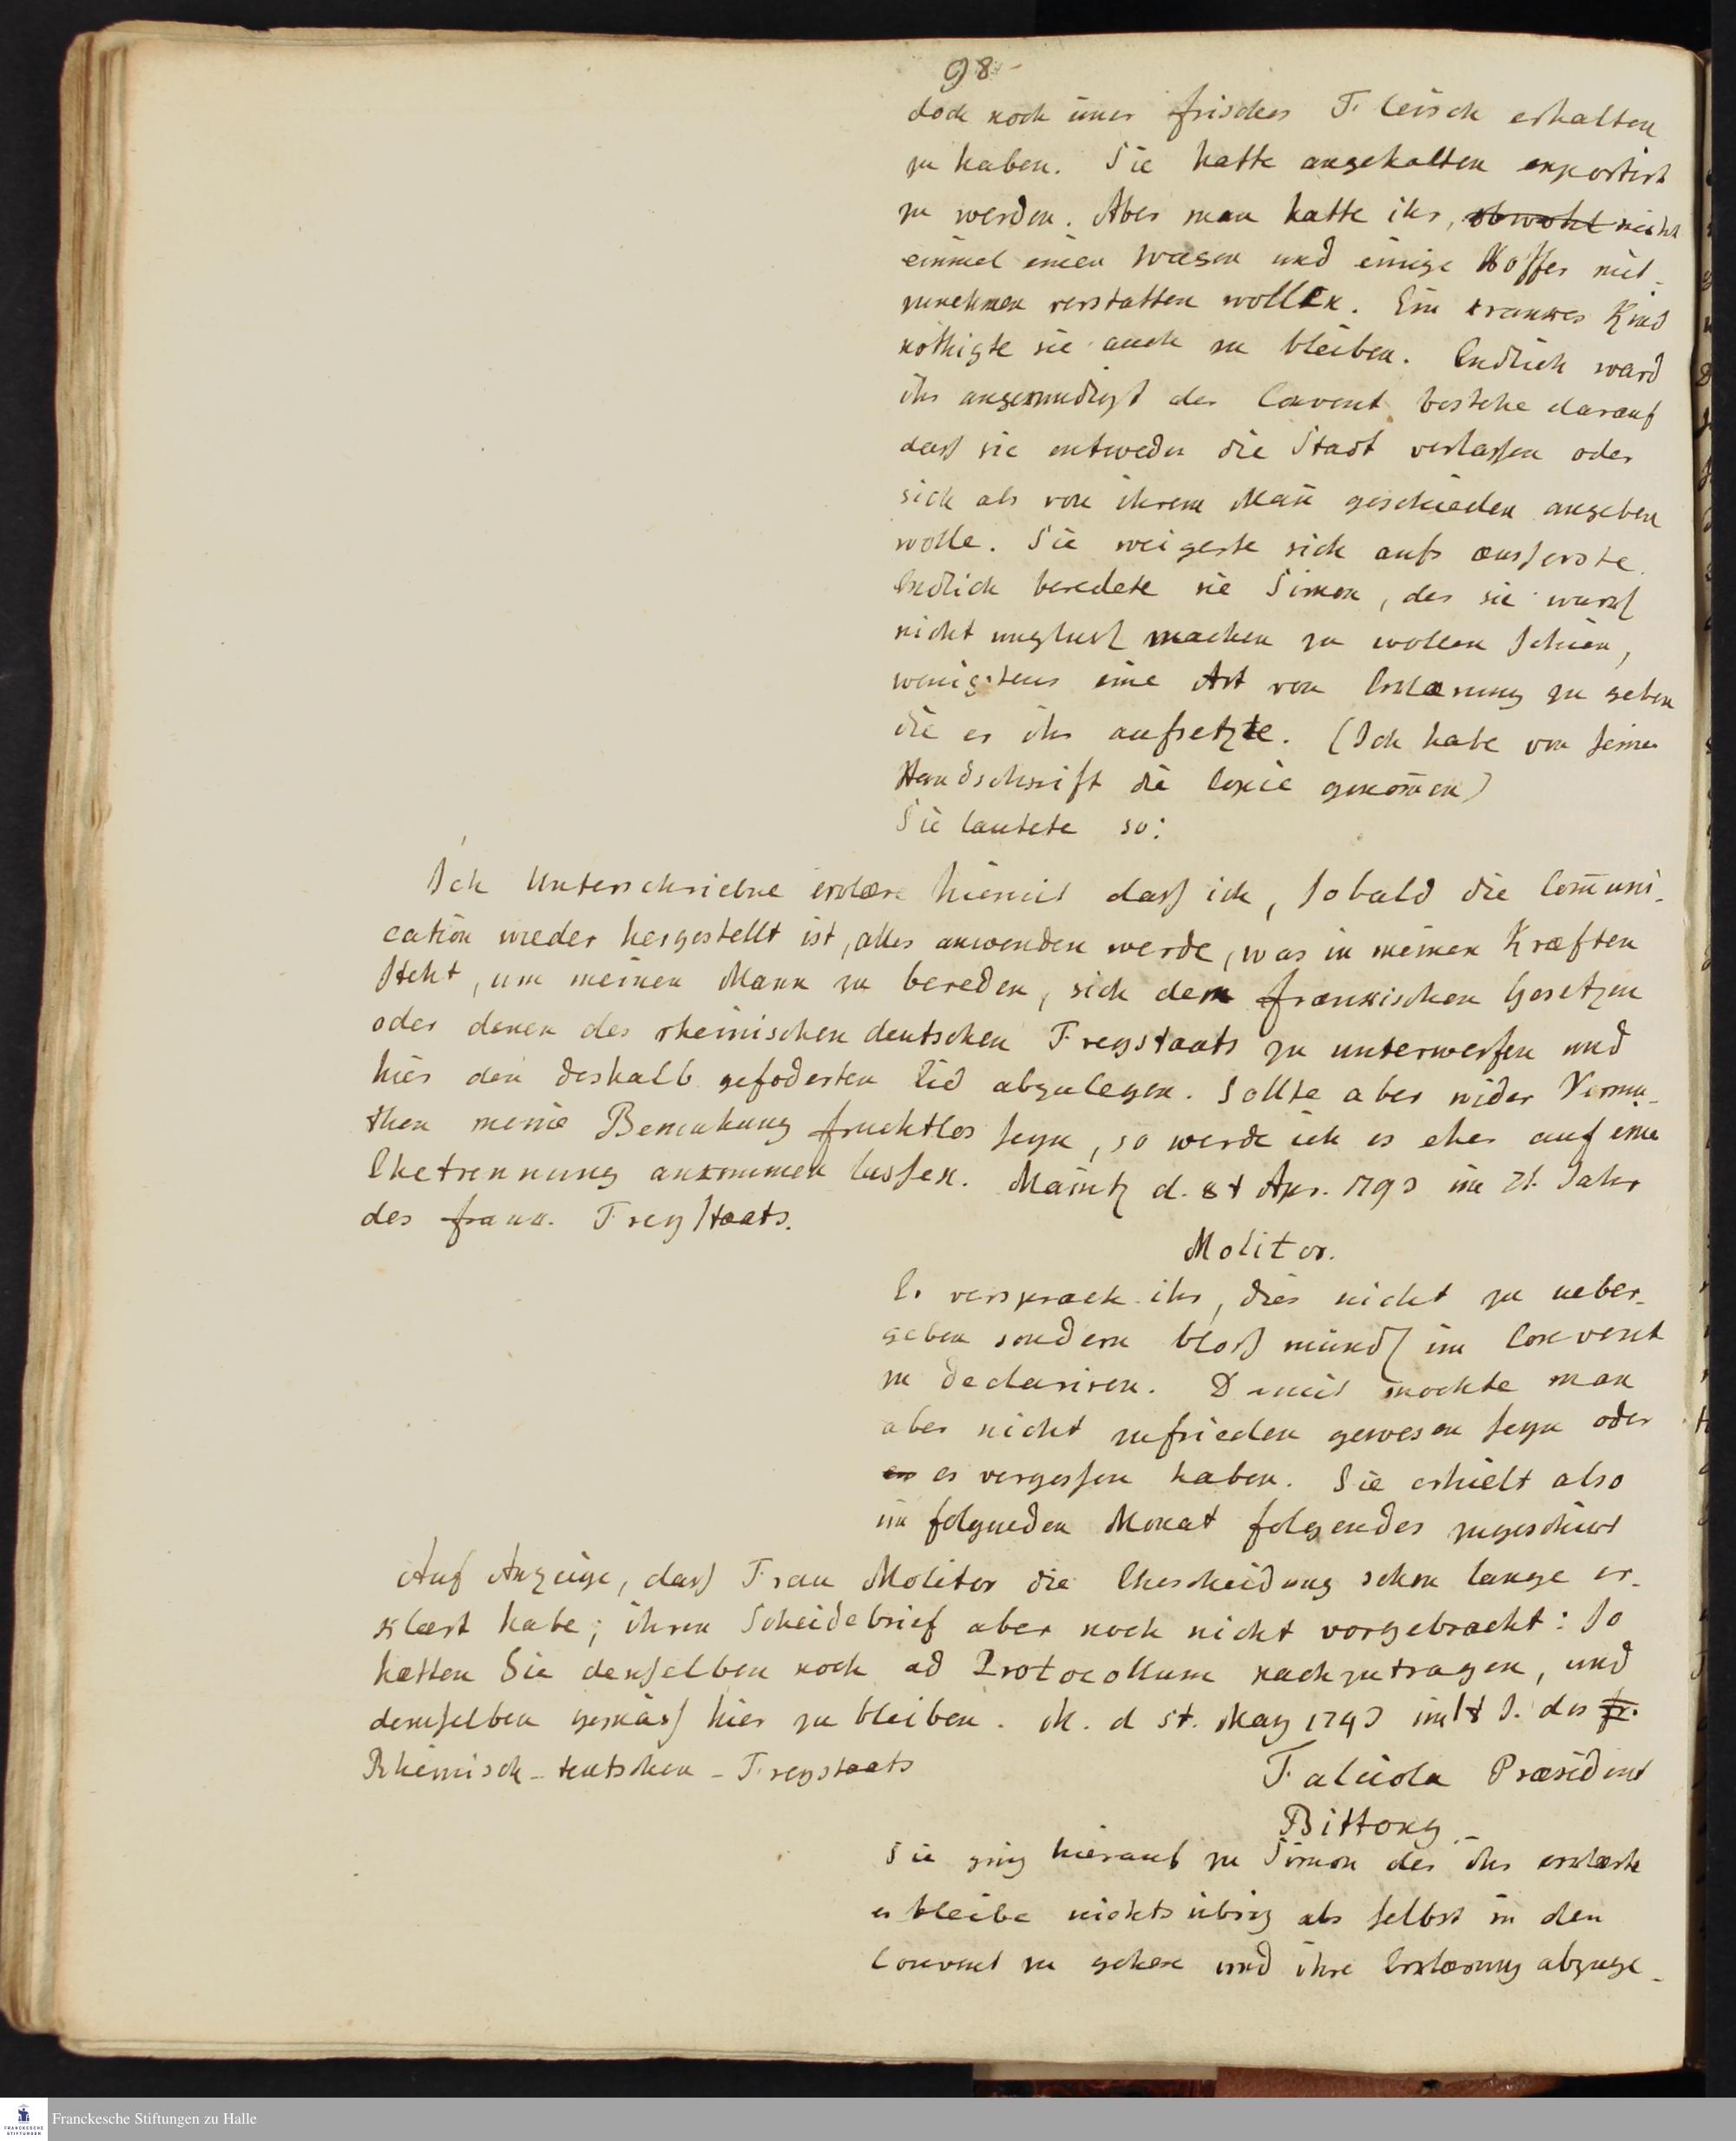 98
doch noch im̄er frisches Fleisch erhalten
zu haben. Sie hatte angehalten exportirt
zu werden. Aber man hatte ihr, obwohl nicht
einmal einen Wagen und einige Koffer mit-
zunehmen verstatten wollen. Ein krankes Kind
nöthigte sie auch zu bleiben. Endlich ward
ihr angekündigt der Convent bestehe darauf
dass sie entweder die Stadt verlassen oder
sich als von ihrem Man̄ geschieden angeben
wolle. Sie weigerte sich aufs æusserste.
Endlich beredete sie Simon, der sie
nicht machen zu wollen schien,
wenigstens eine Art von Erklærung zu geben
die er ihr aufsetzte. (Ich habe von seiner
Handschrift die Copie genom̄en)
Sie lautete so:
Ich Unterschriebne erklære hiemit dass ich, sobald die Com̄uni-
cation wieder hergestellt ist, alles anwenden werde, was in meinen Kræften
steht, um meinen Mann zu bereden, sich den frænkischen Gesetzen
oder denen des rheinischen deutschen Freystaats zu unterwerfen und
hier den deshalb gefoderten Eid abzulegen. Sollte aber wider Vermu-
then meine Bemuhung fruchtlos seyn, so werde ich es eher auf eine
Ehetrennung ankommen lassen. Maintz d. 8t Apr. 1793 im 2t. Jahr
des frank. Freystaats.
Molitor.
Er versprach ihr, dies nicht zu ueber-
geben sondern bloss mündl im Convent
zu declariren. Damit mochte man
aber nicht zufrieden gewesen seyn oder
er es vergessen haben. Sie erhielt also
im folgenden Monat folgendes zugeschickt
Auf Anzeige, dass Frau Molitor die Ehescheidung schon lange er-
klært habe; ihren Scheidebrief aber noch nicht vorgebracht: So
hætten Sie denselben noch ad Protocollum nachzutragen, und
demselben gemäss hier zu bleiben. M. d 5t. May 1793 im 1t J. des fr.
Rheinisch-teutschen-Freystaats
Falciola Præsident
Bittong
Sie ging hierauf zu Simon der ihr erklærte
es bleibe nichts übrig als selbst in den
Convent zu gehen und ihre Erklærung abzuge-
Franckesche Stiftungen zu Halle
FRANCKESCHE
STIFTUNGEN